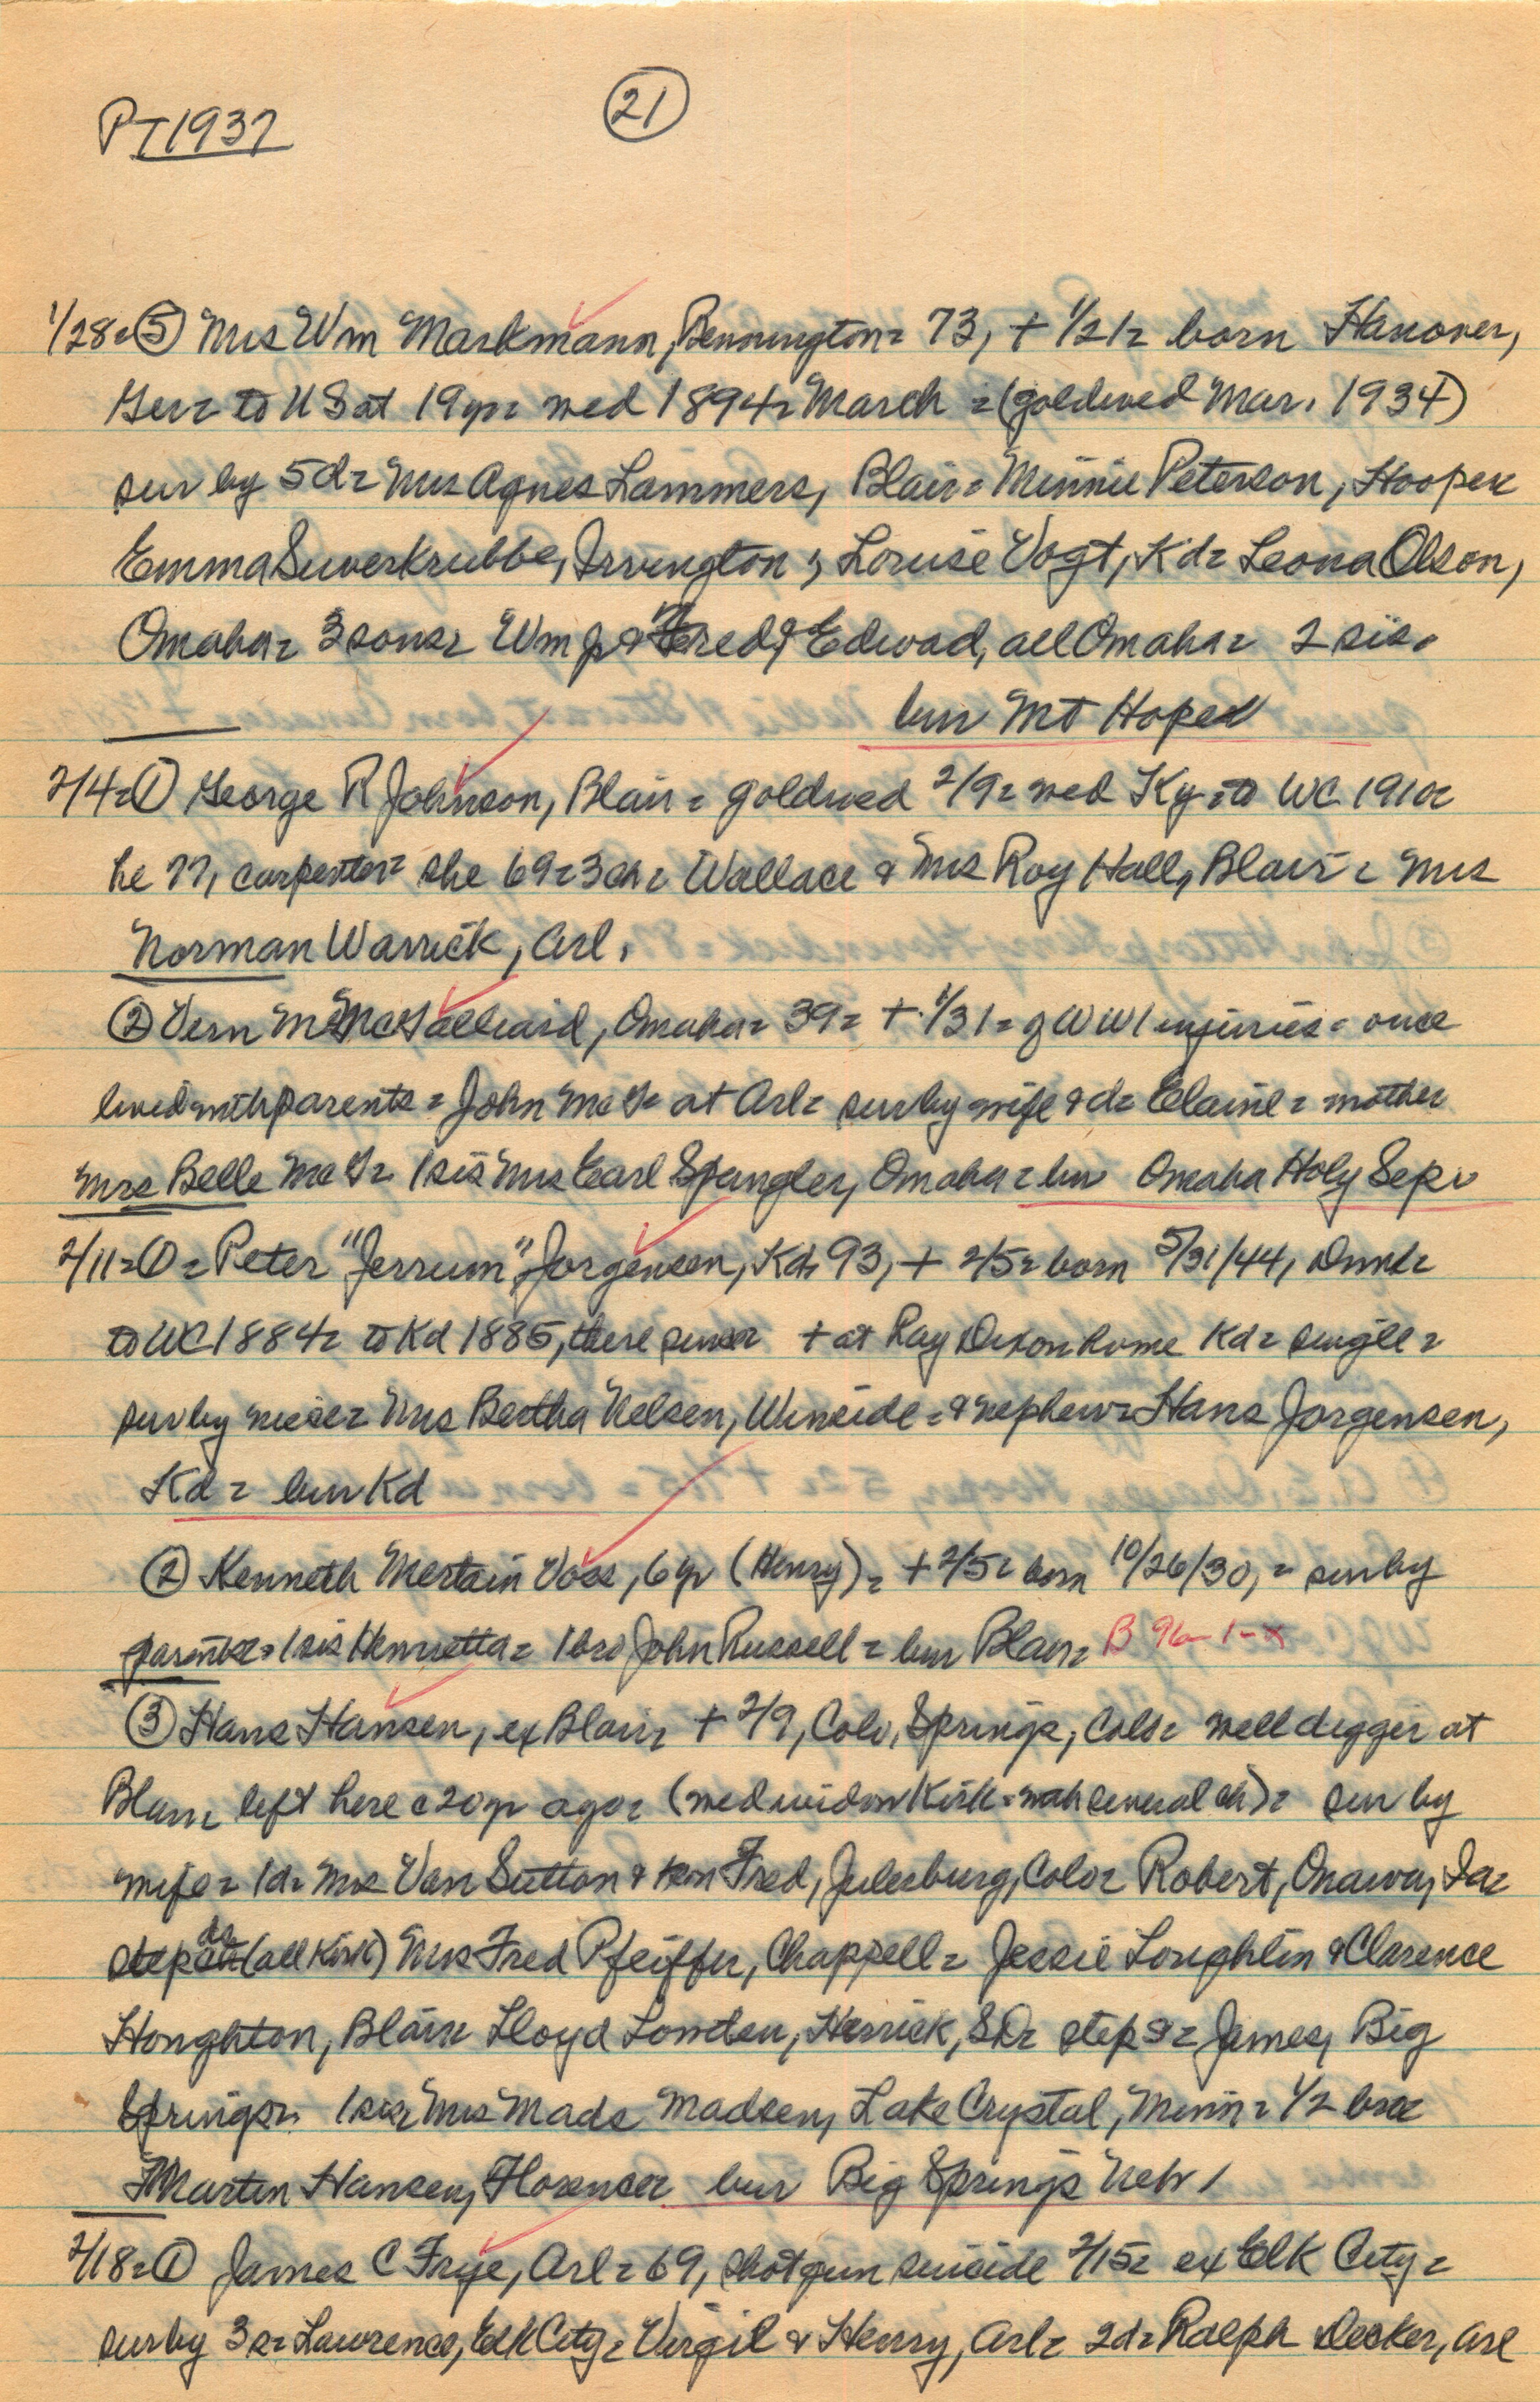 PT 1937
21
1/28= ⑤ Mrs Wm Markmann, Bennington= 73, + 1/21= born Hanover,
Ger= to US at 19yr= wed 1894= March = (goldwed Mar. 1934)
sur by 5d= Mrs Agnes Lammers, Blair= Minnie Peterson, Hooper=
Emma Suverkrubbe, Irvington; Louise Vogt, Kd= Leona Olson,
Omaha= 3 sons= Wm Jr & Fred, & Edwad, all Omaha= 2 sis.
bur Mt Hope=
2/4= ① George R Johnson, Blair= goldwed 2/9= wed Ky= to WC 1910=
he 77, carpenter= she 69= 3ch= Wallace & Mrs Roy Hall, Blair= Mrs
Norman Warrick, Arl.
② Vern M McGalliard, Omaha= 39= + 1/31= of WW1 injuries= once
lived with parents= John McG= at Arl= sur by wife & d= Elaine= mother
Mrs Belle McG= 1 sis Mrs Earl Spangler, Omaha= bur Omaha Holy Sep.
2/11= ① = Peter "Jerrum" Jorgensen, Kd, 93, + 2/5= born 5/31/44, Denmk=
to WC 1884= to Kd 1885, there since= + at Ray Dixon home Kd= single=
sur by niece= Mrs Bertha Nelsen, Winside= & nephew= Hans Jorgensen,
Kd= bur Kd
② Kenneth Mertain Voss, 6yr (Henry)= + 2/5= born 10/26/30,= sur by
parents= 1 sis Henrietta= 1 bro John Russell= bur Blair= B 96-1-x
③ Hans Hansen, ex Blair= + 2/9, Colo. Springs, Colo= well digger at
Blair= left here c20yr ago= (wed widow Kirk= wah several ch)= sur by
wife= 1d= Mrs Van Sutton & son Fred, Julesburg, Colo= Robert, Onawa, Ia=
step ds (all Kirk) Mrs Fred Pfeiffer, Chappell= Jessie Loughlin & Clarence
Houghton, Blair= Lloyd Lowden, Herrick, SD= step s= James, Big
Springs= 1 sis= Mrs Mads Madsen, Lake Crystal, Minn= 1/2 bro=
Martin Hansen, Florence= bur Big Springs Neb/
2/18= ① James C Frye, Arl= 69, shotgun suicide 2/15= ex Elk City=
sur by 3s= Lawrence, Elk City= Virgil & Henry, Arl= 2d= Ralph Decker, Arl